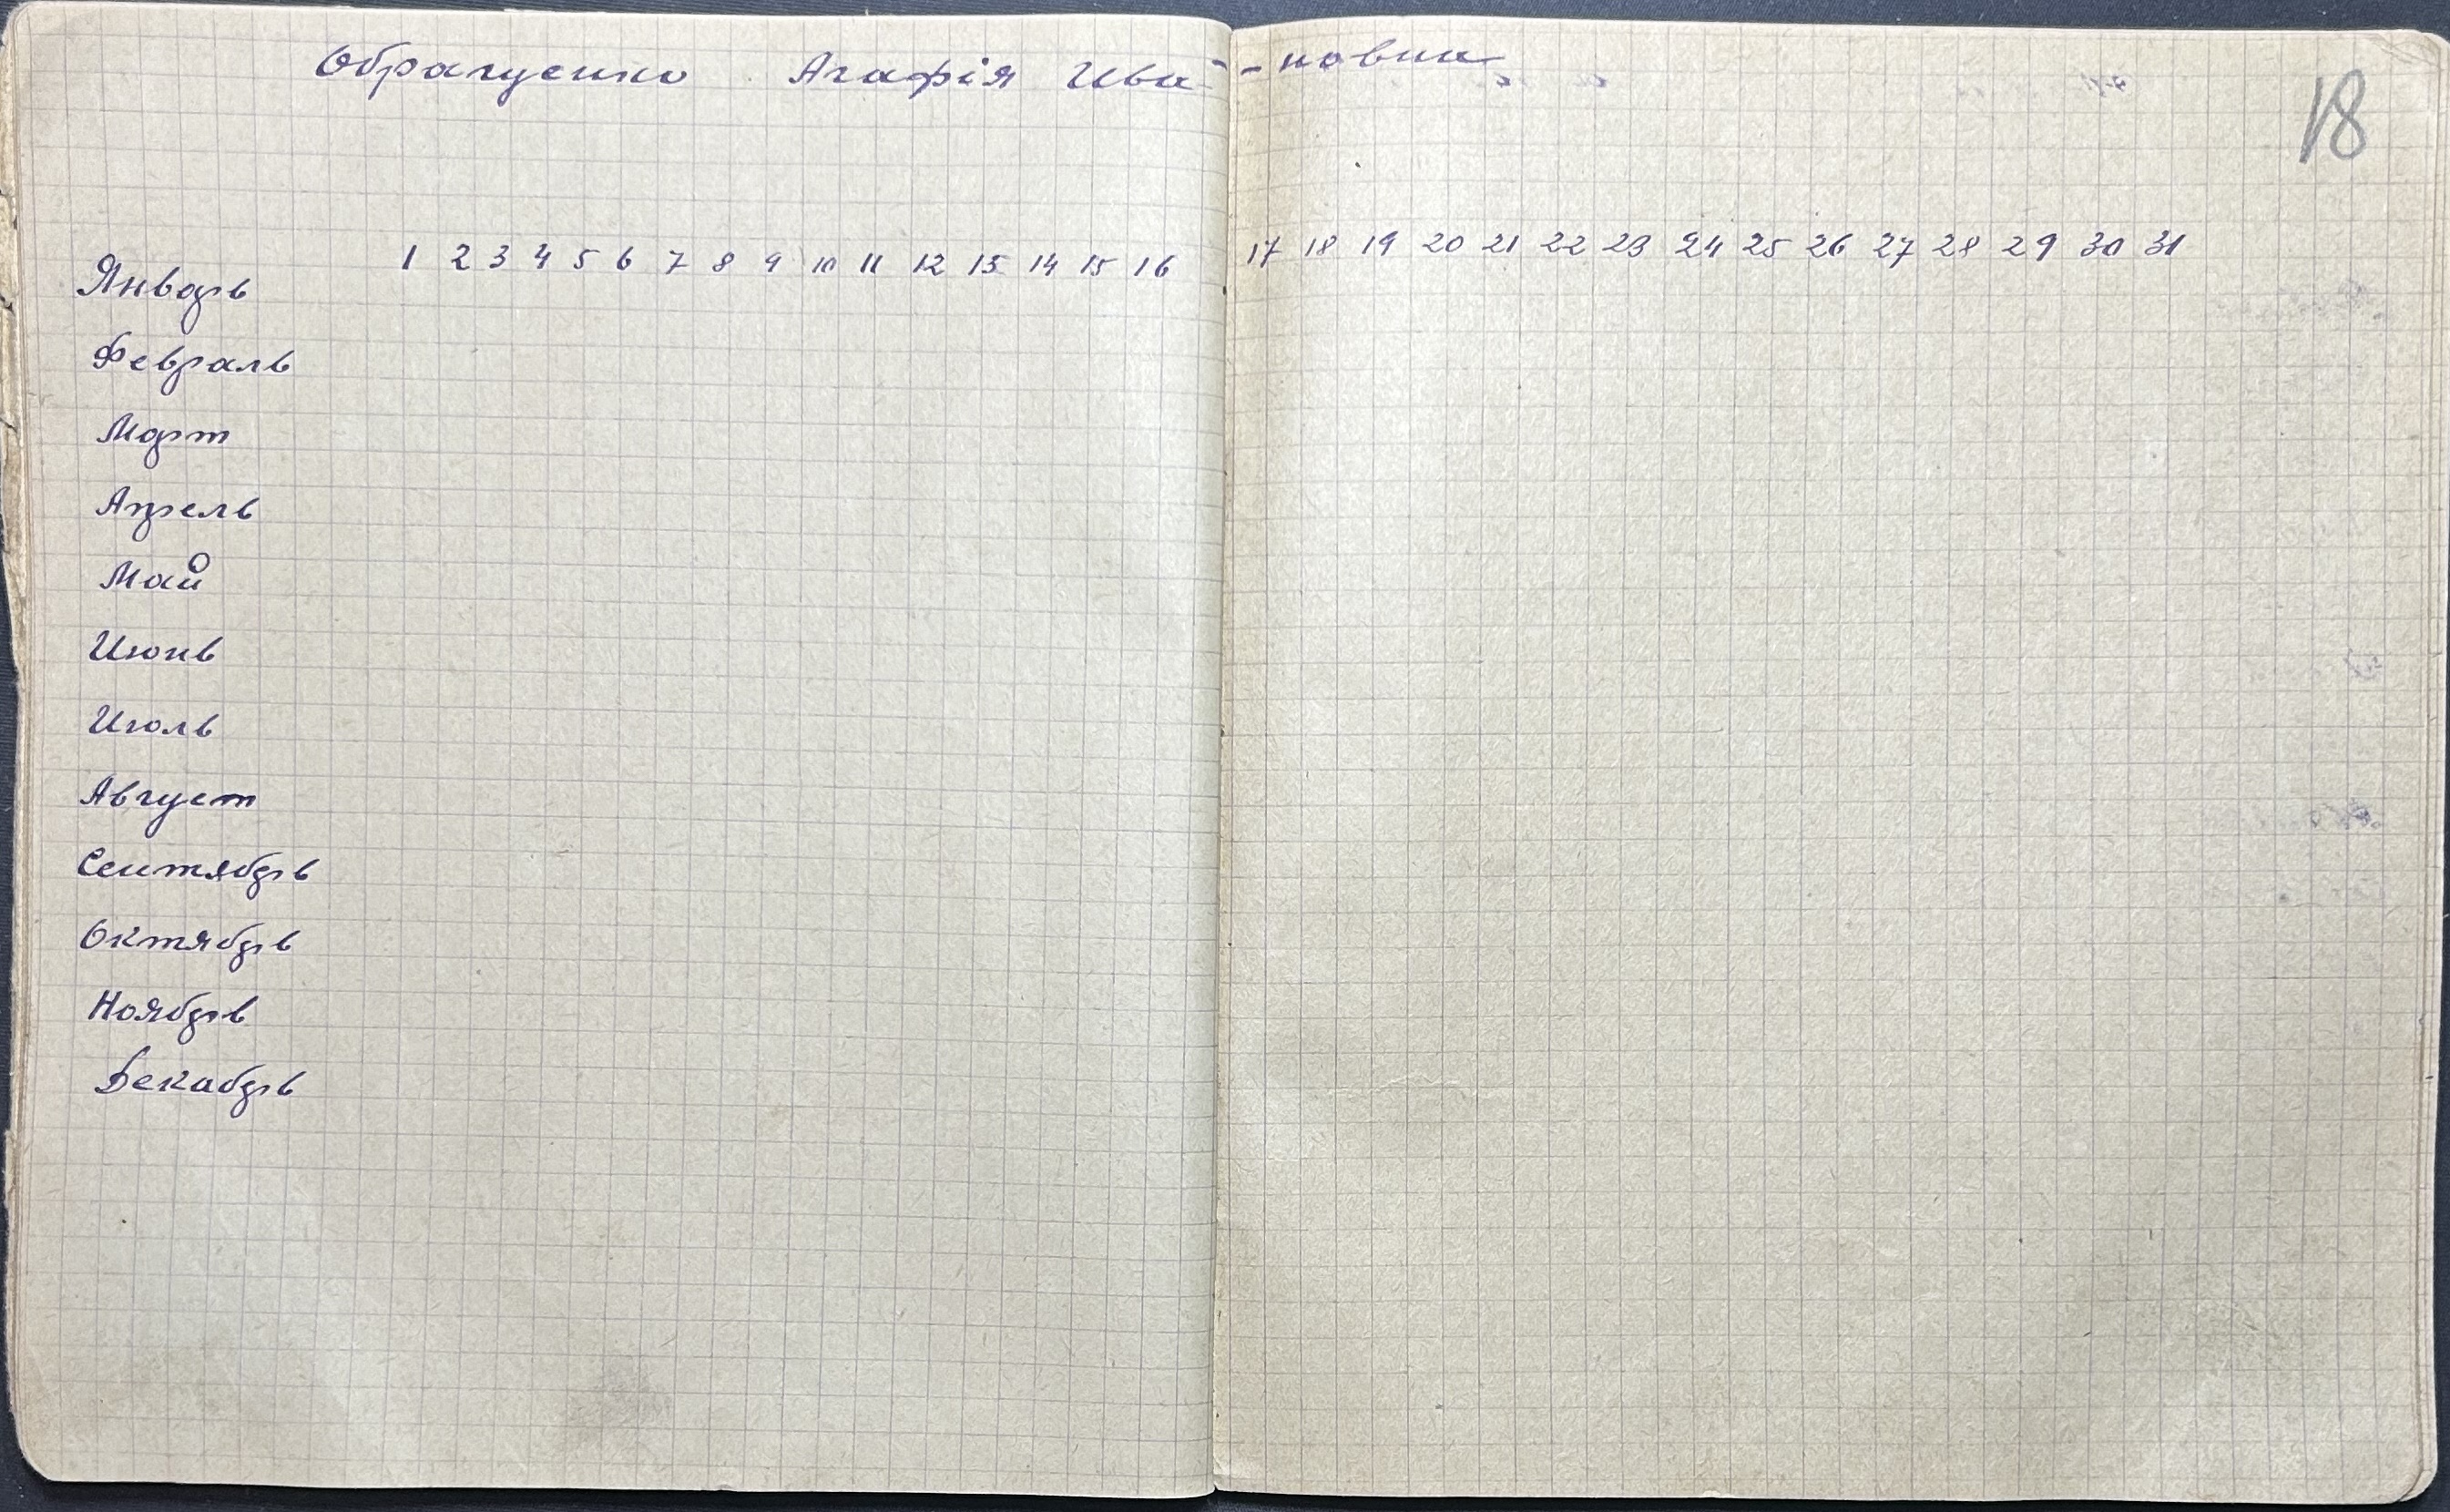 Обращенко Агафія Ива- -новна
18
1 2 3 4 5 6 7 8 9 10 11 12 13 14 15 16 17 18 19 20 21 22 23 24 25 26 27 28 29 30 31
Январь
Февраль
Март
Апрель
Май
Июнь
Июль
Август
Сентябрь
Октябрь
Ноябрь
Декабрь